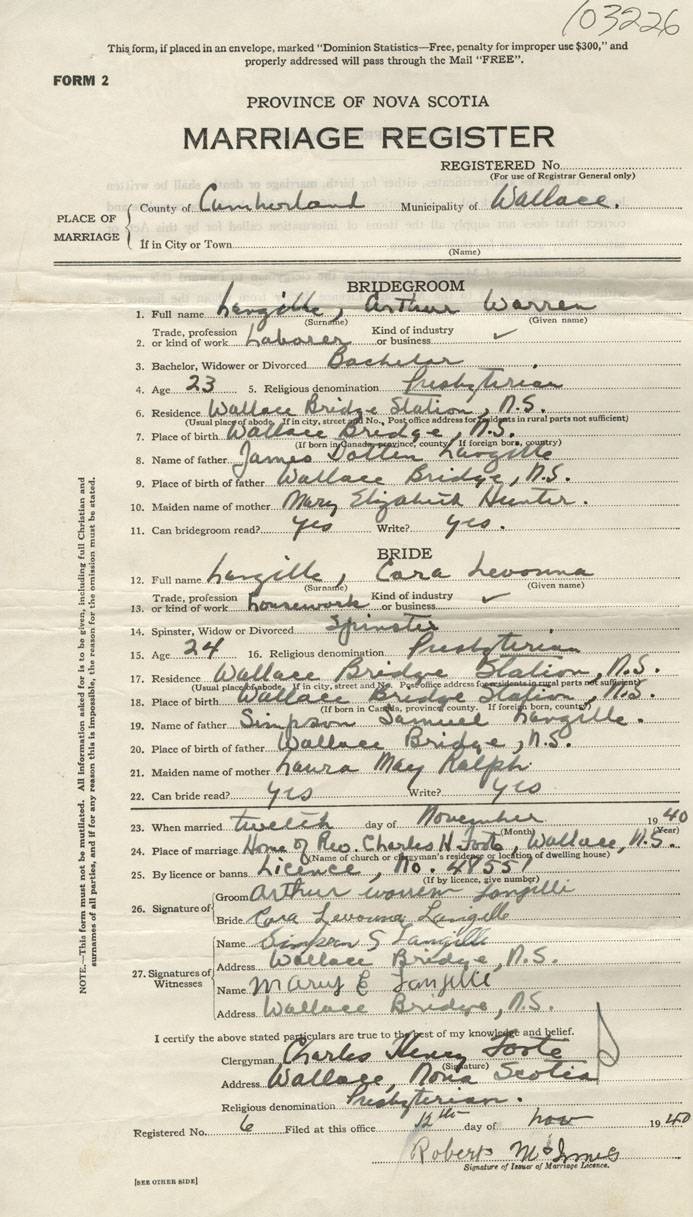 103226
This form, if placed in an envelope, marked "Dominion Statistics—Free, penalty for improper use $300," and
properly addressed will pass through the Mail "FREE".
FORM 2
PROVINCE OF NOVA SCOTIA
MARRIAGE REGISTER
REGISTERED No.
(For use of Registrar General only)
PLACE OF MARRIAGE
County of Cumberland Municipality of Wallace.
If in City or Town
(Name)
BRIDEGROOM
1. Full name Langille, Arthur Warren
(Surname) (Given name)
2. Trade, profession or kind of work Laborer Kind of industry or business ✓
3. Bachelor, Widower or Divorced Bachelor
4. Age 23 5. Religious denomination Presbyterian
6. Residence Wallace Bridge Station, N.S.
(Usual place of abode. If in city, street and No. Post office address for residents in rural parts not sufficient)
7. Place of birth Wallace Bridge, N.S.
(If born in Canada, province, county. If foreign born, country)
8. Name of father James Dotten Langille
9. Place of birth of father Wallace Bridge, N.S.
10. Maiden name of mother Mary Elizabeth Hunter.
11. Can bridegroom read? yes Write? yes.
BRIDE
12. Full name Langille, Cara Levonna
(Surname) (Given name)
13. Trade, profession or kind of work housework Kind of industry or business ✓
14. Spinster, Widow or Divorced Spinster
15. Age 24 16. Religious denomination Presbyterian
17. Residence Wallace Bridge Station, N.S.
(Usual place of abode. If in city, street and No. Post office address for residents in rural parts not sufficient)
18. Place of birth Wallace Bridge Station, N.S.
(If born in Canada, province county. If foreign born, country)
19. Name of father Simpson Samuel Langille.
20. Place of birth of father Wallace Bridge, N.S.
21. Maiden name of mother Laura May Ralph
22. Can bride read? yes Write? yes
23. When married twelth day of November 1940
(Month) (Year)
24. Place of marriage Home of Rev. Charles H Foote, Wallace, N.S.
(Name of church or clergyman's residence or location of dwelling house)
25. By licence or banns Licence, No. 48551
(If by licence, give number)
26. Signature of
Groom Arthur Warren Langille
Bride Cara Levouna Langille
27. Signatures of Witnesses
Name Simpson S Langille
Address Wallace Bridge, N.S.
Name Mary E Langille
Address Wallace Bridge, N.S.
I certify the above stated particulars are true to the best of my knowledge and belief.
Clergyman Charles Henry Foote
(Signature)
Address Wallace, Nova Scotia
Religious denomination Presbyterian.
Registered No. 6 Filed at this office 12th day of Nov 1940
Robert McInnes
Signature of Issuer of Marriage Licence.
[SEE OTHER SIDE]
NOTE.—This form must not be mutilated. All information asked for is to be given, including full Christian and
surnames of all parties, and if for any reason this is impossible, the reason for the omission must be stated.